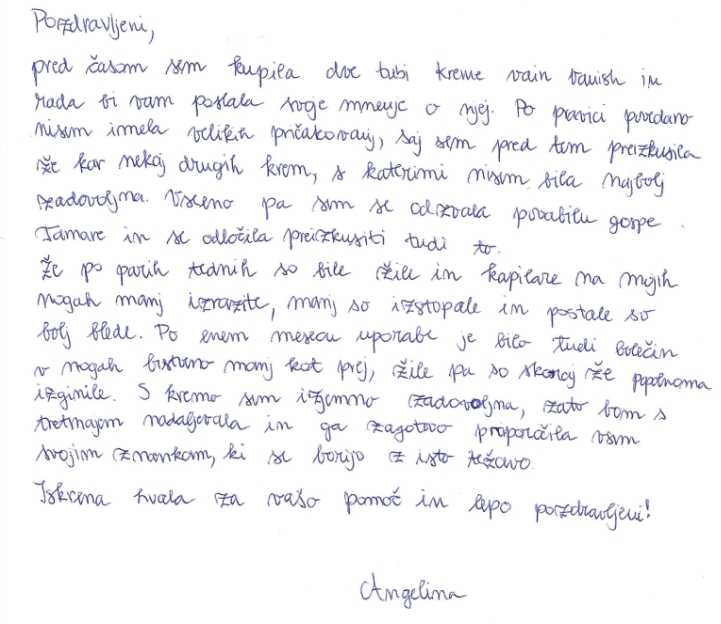 Pozdravljeni,
pred časom sem kupila dve tubi kreme vain vanish in
rada bi vam poslala svoje mnenje o njej. Po pravici povedano
nisem imela velikih pričakovanj, saj sem pred tem preizkusila
že kar nekaj drugih krem, s katerimi nisem bila najbolj
zadovoljna. Vseeno pa sem se odzvala povabilu gospe
Tamare in se odločila preizkusiti tudi to.
Že po parih tednih so bile žile in kapilare na mojih
nogah manj izrazite, manj so izstopale in postale so
bolj blede. Po enem mesecu uporabe je bilo tudi bolečin
v nogah bistveno manj kot prej, žile pa so skoraj že popolnoma
izginile. S kremo sem izjemno zadovoljna, zato bom s
tretmajem nadaljevala in ga zagotovo priporočila vsem
svojim znankam, ki se borijo z isto težavo.
Iskrena hvala za vašo pomoč in lepo pozdravljeni!
Angelina